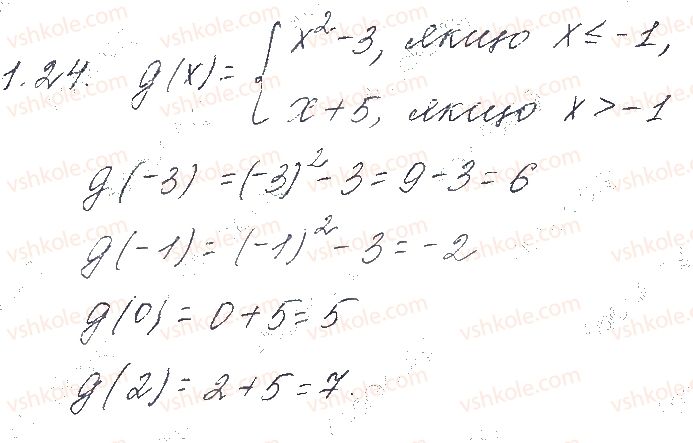 1.24. g(x) = { x² - 3, якщо x ≤ -1,
x + 5, якщо x > -1
g(-3) = (-3)² - 3 = 9 - 3 = 6
g(-1) = (-1)² - 3 = -2
g(0) = 0 + 5 = 5
g(2) = 2 + 5 = 7.
vshkole.com